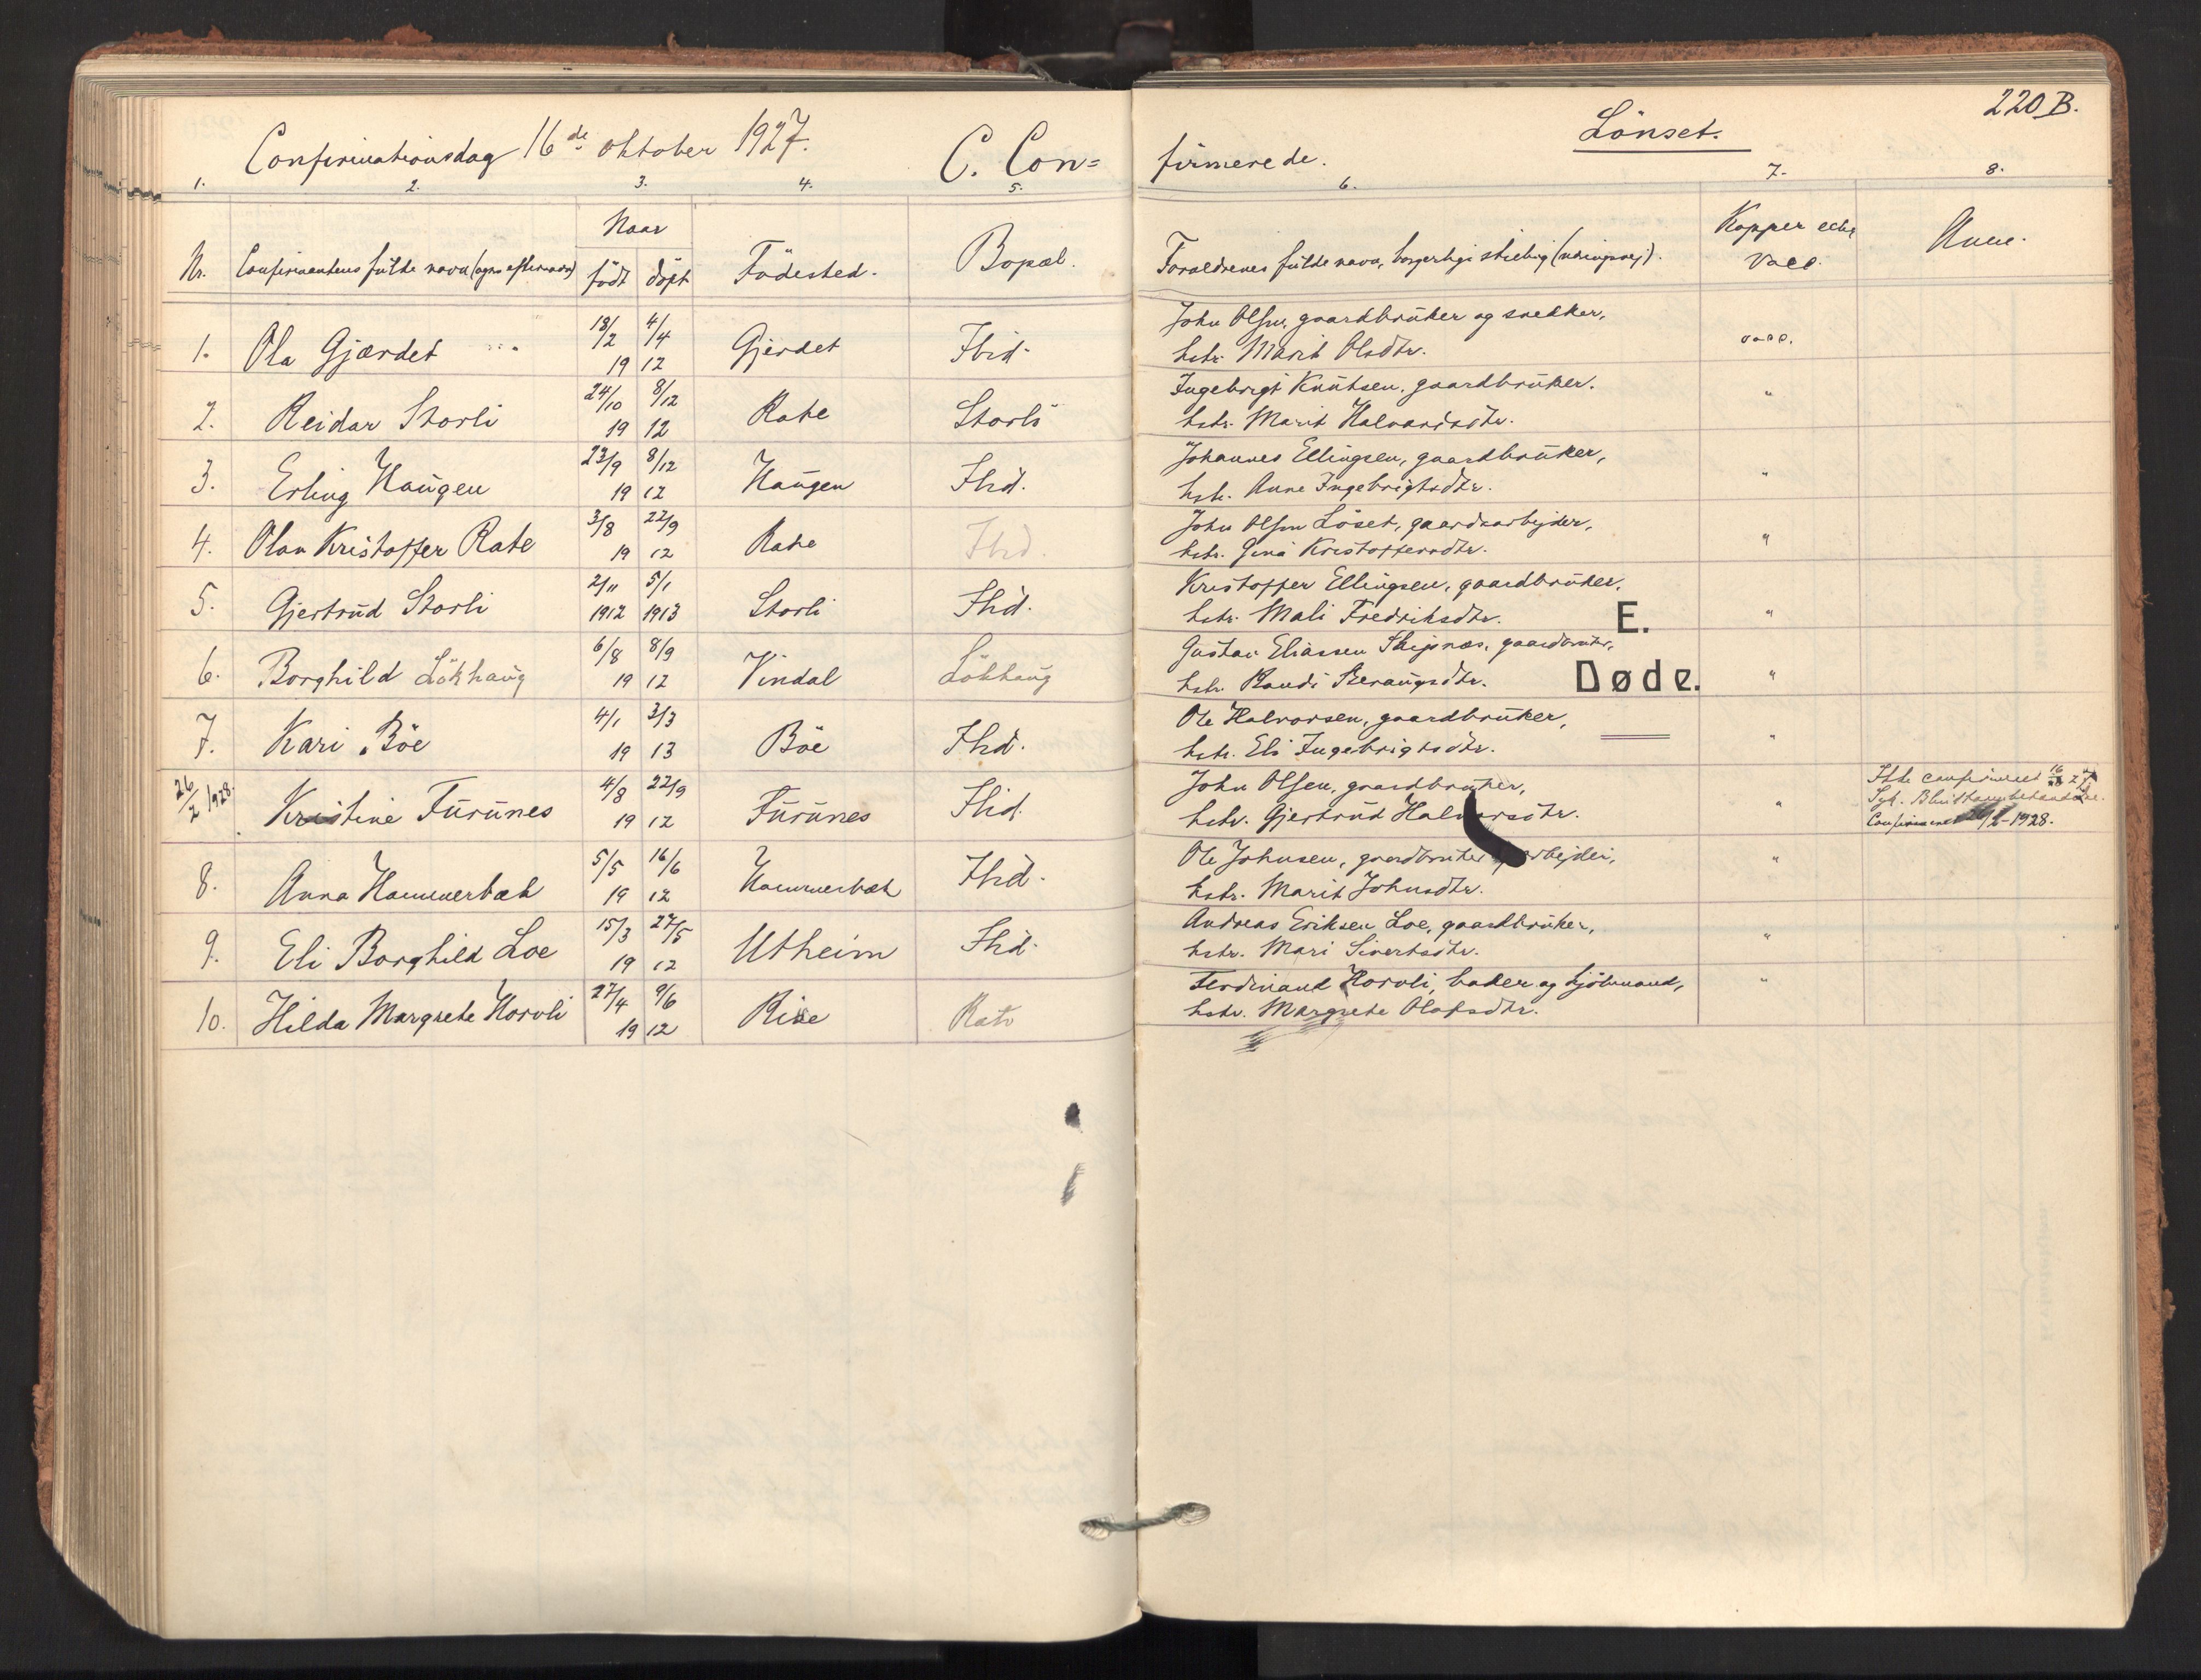 220 B.
Confirmationsdag 16de oktober 1927. C. Con=
firmerede. Lönset.
1. 2. 3. 4. 5. 6. 7. 8.
Nr. Confirmantens fulde navn (ogsaa efternavn) Naar født döpt Födested. Bopæl. Forældrenes fulde navn, borgerlige stilling (næringsvej). Kopper eller Vacc. Anm.
1. Ola Gjærdet 18/2 4/4 Gjerdet Ibid. John Olsen, gaardbrüker og snekker,
19 12 hstr. Marit Olsdtr. vacc.
2. Reidar Storli 24/10 8/12 Rate Storli Ingebrigt Knutsen, gaardbrüker.
19 12 hstr. Marit Halvardsdtr. "
3. Erling Haugen 23/9 8/12 Haugen Ibid. Johannes Ellingsen, gaardbrüker,
19 12 hstr. Anne Ingebrigtsdtr. "
4. Olav Kristoffer Rate 3/8 22/9 Rate Ibid. John Olsen Löset, gaardsarbejder,
19 12 hstr. Gina Kristoffersdtr. "
5. Gjertrud Storli 2/11 5/1 Storli Ibid. Kristoffer Ellingsen, gaardbrüker,
1912 1913 hstr. Mali Fredriksdtr. "
E.
6. Borghild Lökhaug 6/8 8/9 Vindal Lökhaug Gustav Eliassen Skipnæs, gaardbruker,
19 12 hstr. Randi "
Døde.
7. Kari Böe 4/1 3/3 Böe Ibid. Ole Halvorsen, gaardbrüker,
19 13 hstr. Eli Ingebrigtsdtr. "
26/2 1928. Kristine Furunes 4/8 22/9 Furunes Ibid. John Olsen, gaardbruker,
19 12 hstr. Gjertrud Halvorsdtr. "
Ikke confirmeret 16/10 27
Syk.
Confirmeret 26/2-1928.
8. Anna Hammerbæk 5/5 16/6 Hammerbæk Ibid. Ole Johnsen, gaardbruker arbejder,
19 12 hstr. Marit Johnsdtr. "
9. Eli Borghild Loe 15/3 27/5 Utheim Ibid. Andreas Eriksen Loe, gaardbrüker,
19 12 hstr. Mari Sivertsdtr. "
10. Hilda Margrete Horvli 27/4 9/6 Rise Rate Ferdinand Horvli, baker og kjöbmand,
19 12 hstr. Margrete Olafsdtr. "